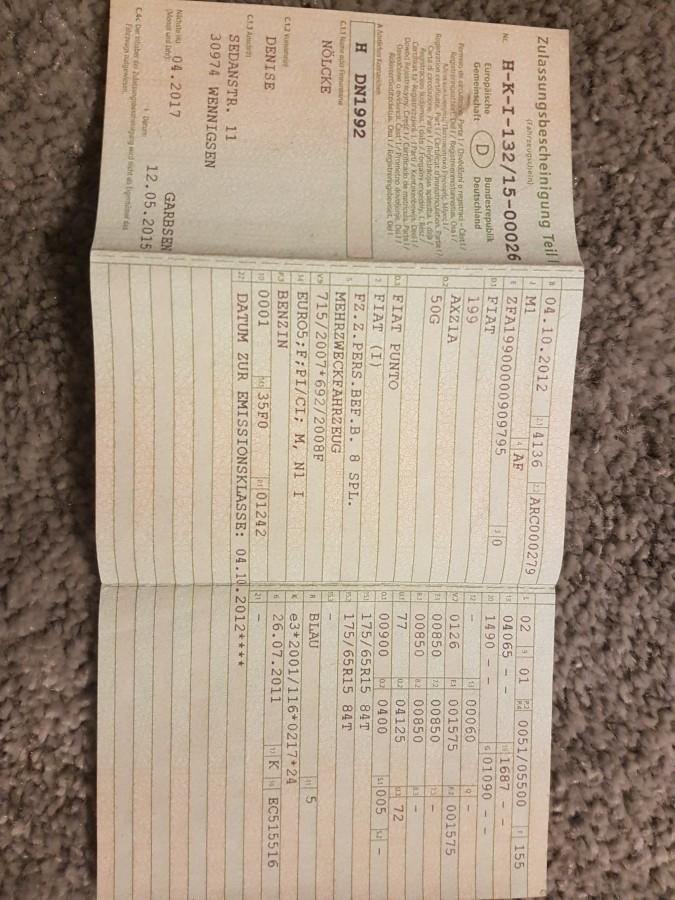 Zulassungsbescheinigung Teil I
(Fahrzeugschein)
Nr. H-K-I-132/15-00026
Europäische Gemeinschaft
D
Bundesrepublik Deutschland
H DN1992
C.1.1 Name oder Firmenname
NÖLCKE
C.1.2 Vorname(n)
DENISE
C.1.3 Anschrift
SEDANSTR. 11
30974 WENNIGSEN
Nächste HU
(Monat und Jahr)
04.2017
GARBSEN
Datum
12.05.2015
B 04.10.2012 2.1 4136 2.2 ARC000279
J M1 4 AF
E ZFA19900000909795 3 0
D.1 FIAT
199
D.2 AXZ1A
50G
D.3 FIAT PUNTO
2 FIAT (I)
5 FZ.Z.PERS.BEF.B. 8 SPL.
MEHRZWECKFAHRZEUG
V.9 715/2007*692/2008F
14 EURO5;F;PI/CI; M, N1 I
P.3 BENZIN
10 0001 14.1 35F0 P.1 01242
22 DATUM ZUR EMISSIONSKLASSE: 04.10.2012****
L 02 9 01 P.2 P.4 0051/05500 T 155
18 04065 - - 19 1687 - -
20 1490 - - G 01090 - -
12 - 13 00060 Q -
V.7 0126 F.1 001575 F.2 001575
7.1 00850 7.2 00850 7.3 -
8.1 00850 8.2 00850 8.3 -
U.1 77 U.2 04125 U.3 72
O.1 00900 O.2 0400 S.1 005 S.2 -
15.1 175/65R15 84T
15.2 175/65R15 84T
15.3 -
R BLAU 11 5
K e3*2001/116*0217*24
6 26.07.2011 17 K 16 EC515516
21 -